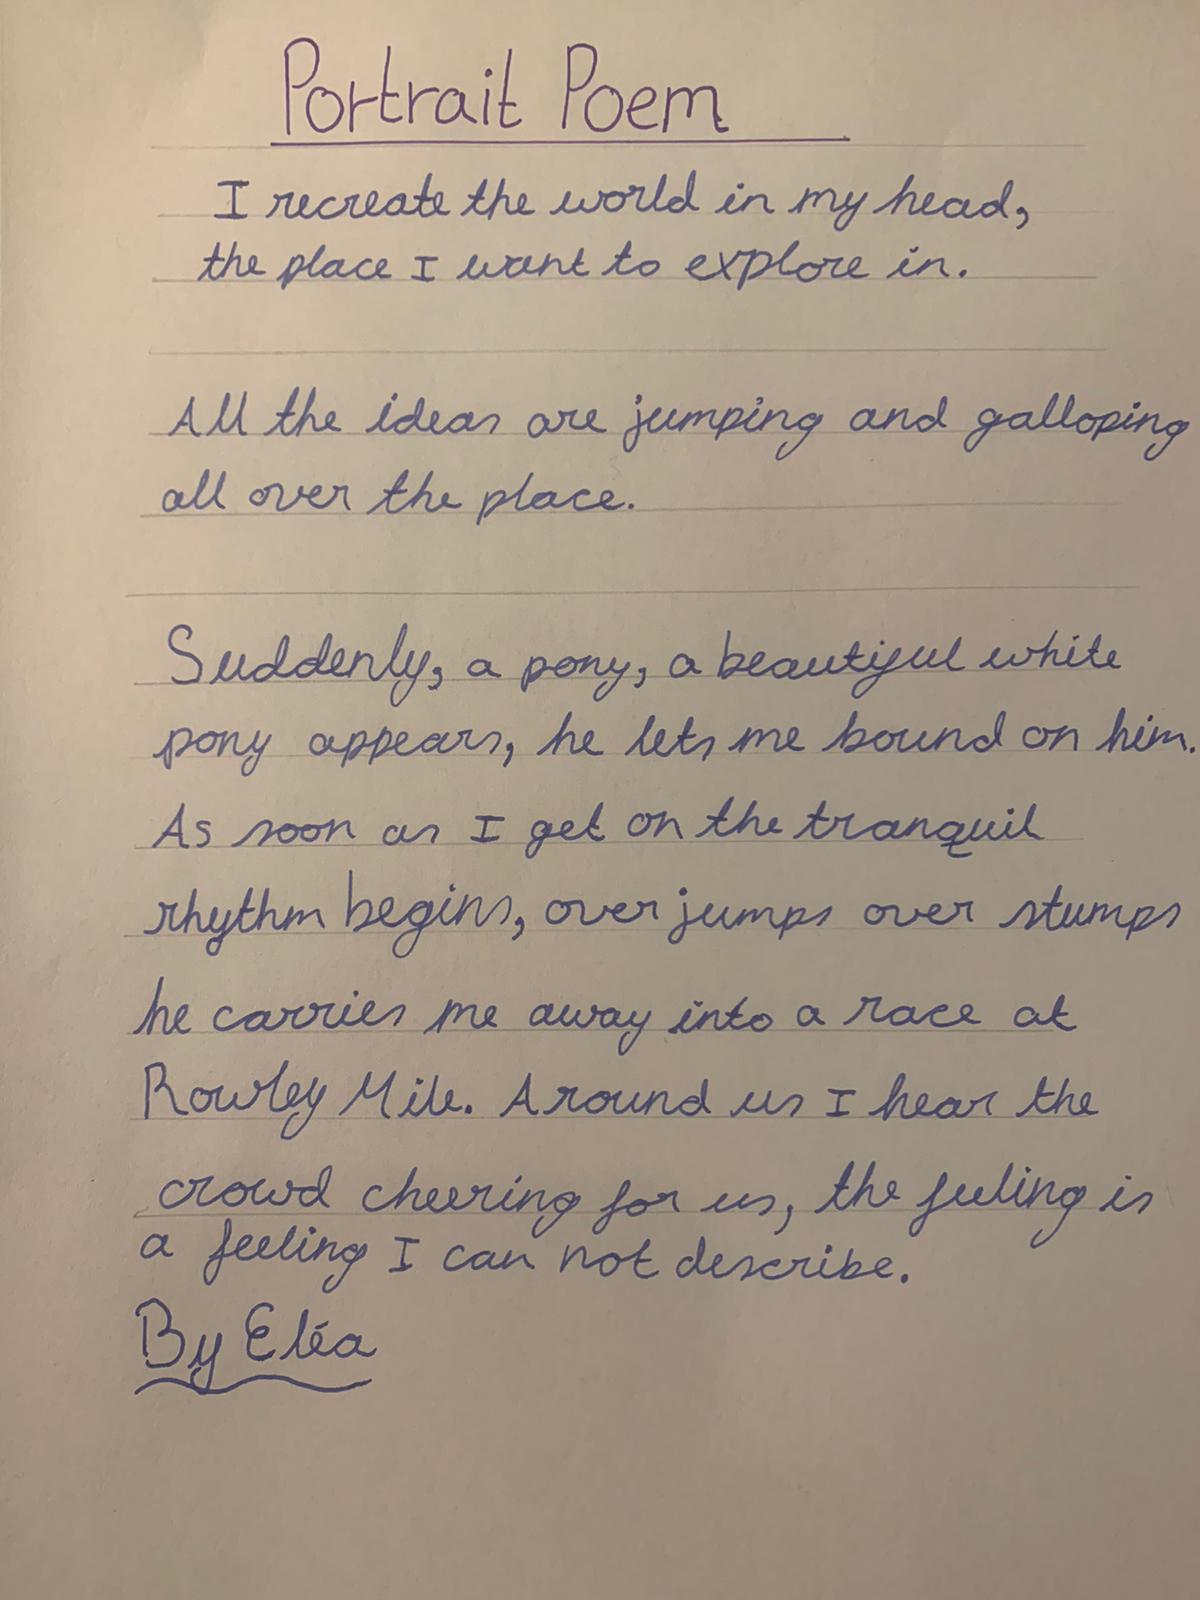 Portrait Poem
I recreate the world in my head,
the place I want to explore in.
All the ideas are jumping and galloping
all over the place.
Suddenly, a pony, a beautiful white
pony appears, he lets me bound on him.
As soon as I get on the tranquil
rhythm begins, over jumps over stumps
he carries me away into a race at
Rowley Mile. Around us I hear the
crowd cheering for us, the feeling is
a feeling I can not describe.
By Eléa